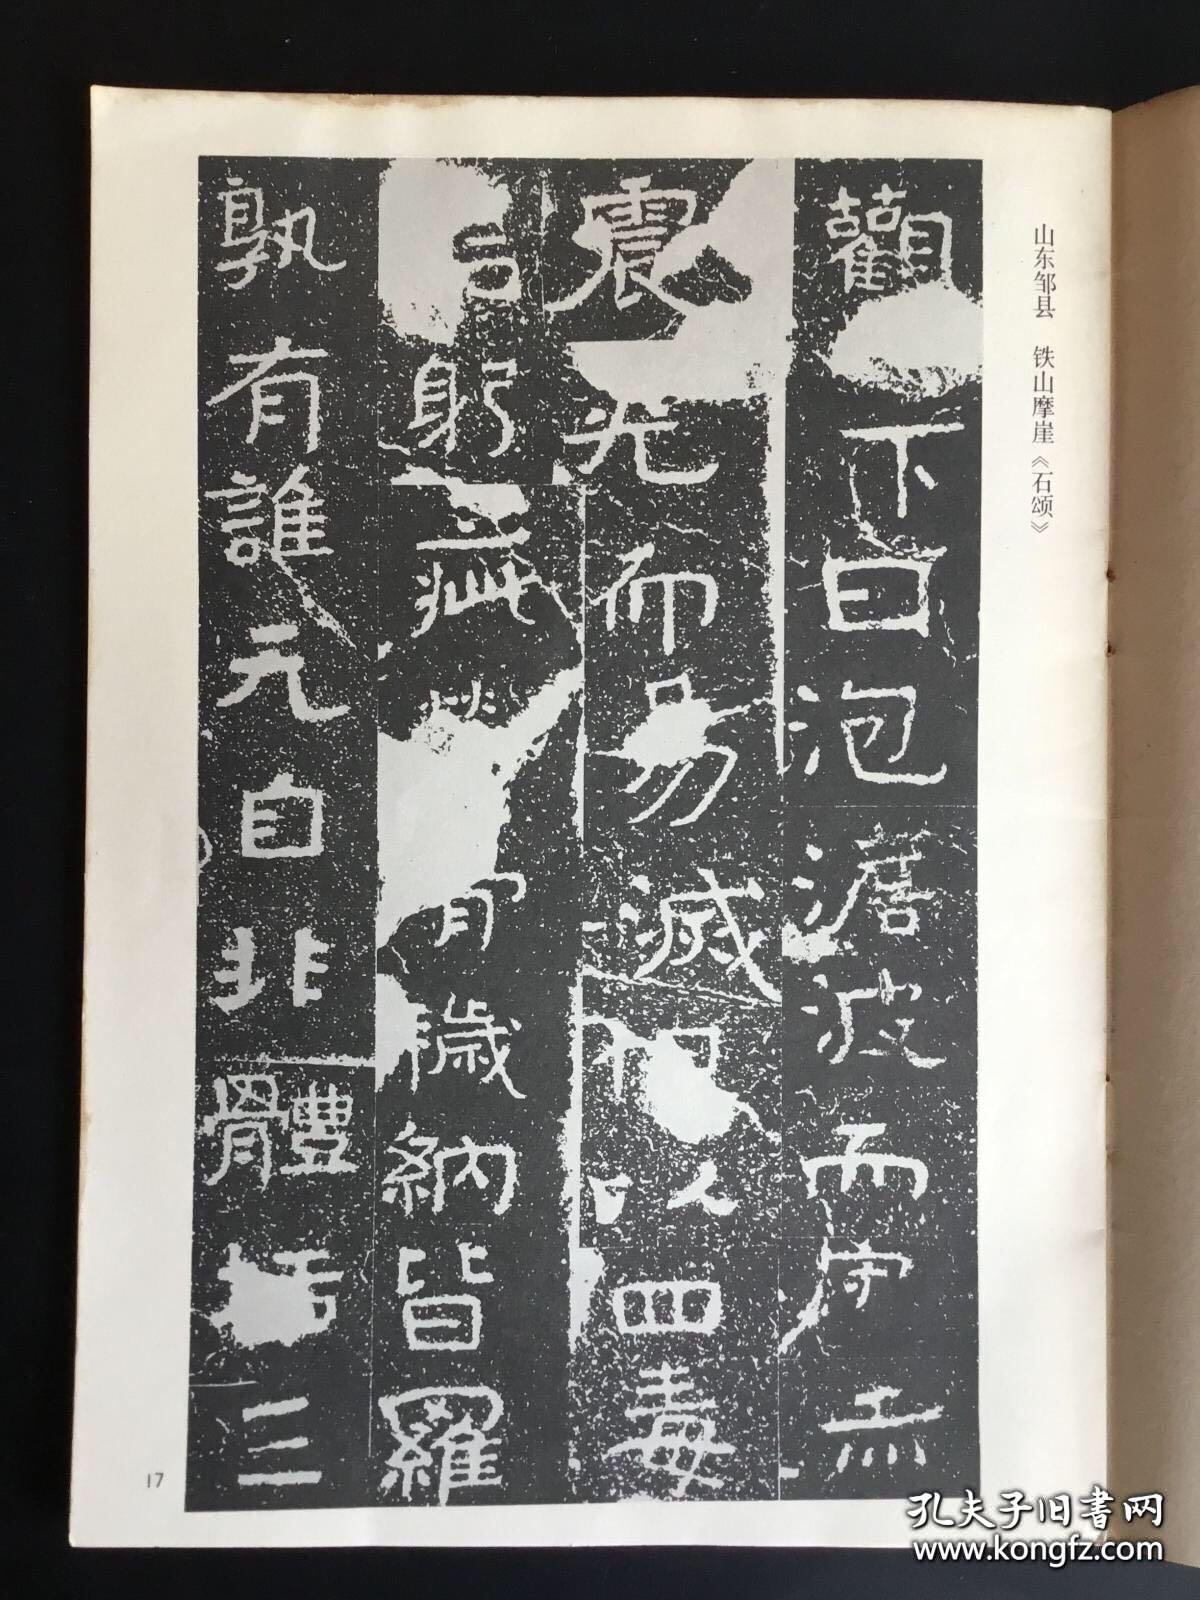 山东邹县 铁山摩崖《石颂》
觀下曰泡澹波而守
震光而易滅以四毒
躬穢納皆羅
孰有誰元自非體括三
17
孔夫子旧书网
www.kongfz.com